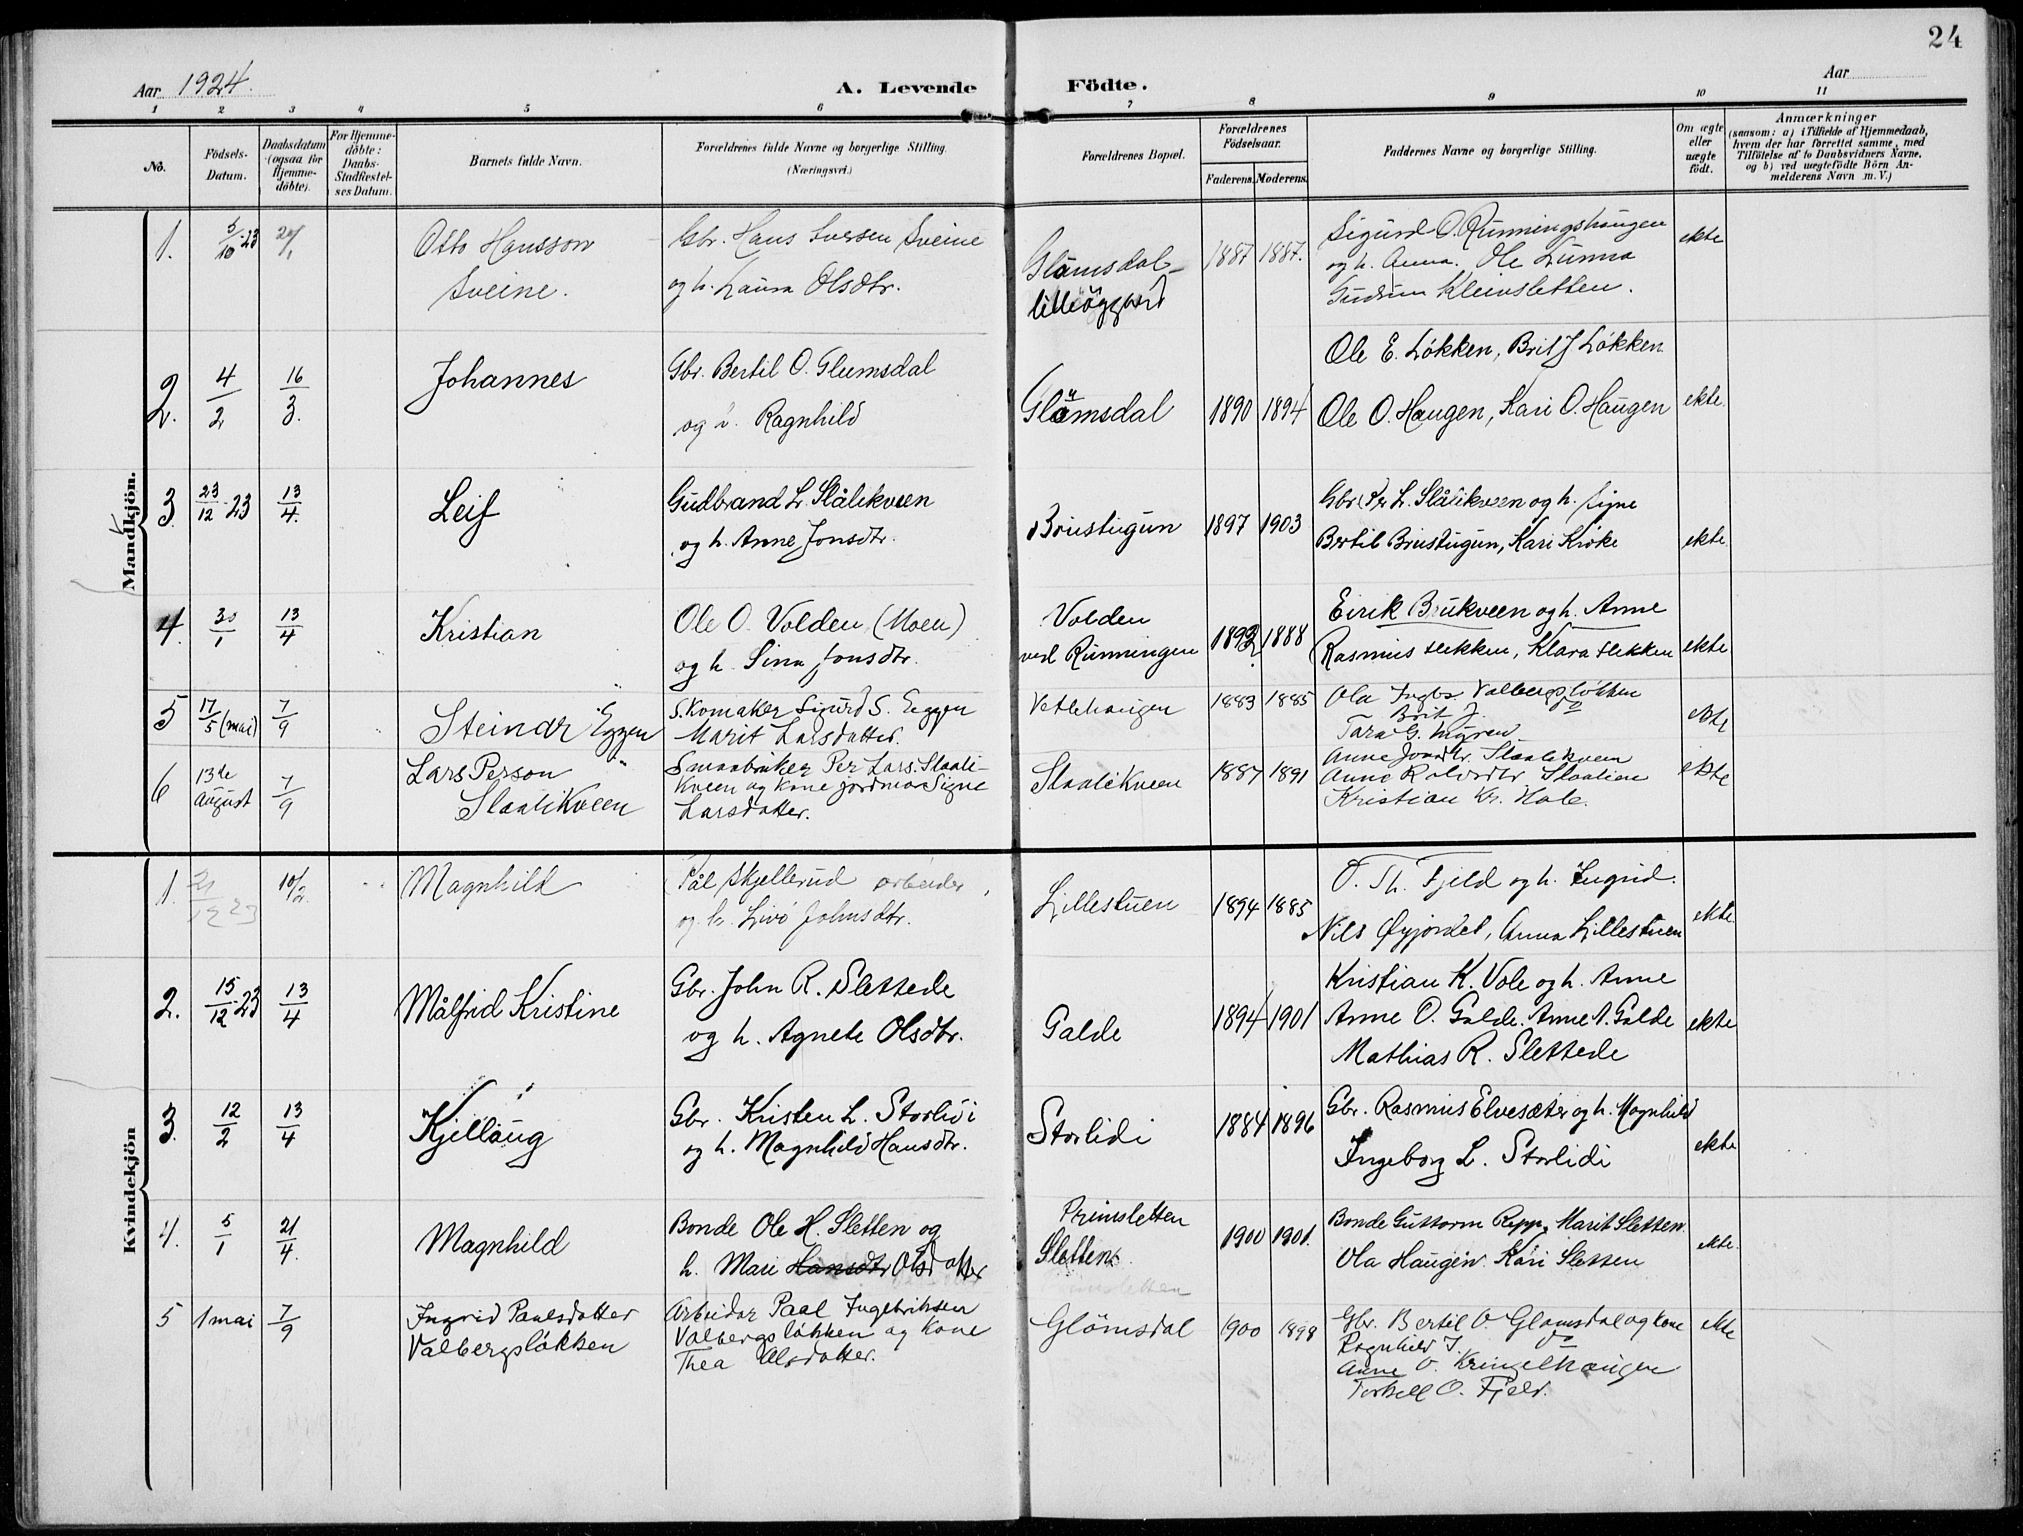 24
Aar 1924.
A. Levende Födte.
Aar
1 2 3 4 5 6 7 8 9 10 11
No.
Födsels-Datum.
Daabsdatum (ogsaa for Hjemmedöbte).
For Hjemmedöbte: Daabs-Stadfæstelses Datum.
Barnets fulde Navn.
Forældrenes fulde Navne og borgerlige Stilling. (Næringsvei.)
Forældrenes Bopæl.
Forældrenes Födselsaar.
Faderens. Moderens.
Faddernes Navne og borgerlige Stilling.
Om ægte eller uægte födt.
Anmærkninger
(saasom: a) i Tilfælde af Hjemmedaab, hvem der har forrettet samme, med Tilföielse af to Daabsvidners Navne, b) ved uægtefödte Börn Anmelderens Navn m. V.)
Mandkjön.
1. 5/10-23 20/1 Otto Hansson Sveine. Gbr. Hans Iversen Sveine og h. Laura Olsdtr. Glåmsdal- lilleöygard 1887 1887. Sigurd O. Runningshaugen og h. Anna. Ole Lunna Gudrun Kleivsletten. ekte
2. 4/2 16/3. Johannes Gbr. Bertil O. Glømsdal og h. Ragnhild Glömsdal 1890 1894 Ole E. Løkken, Brit J Løkken Ole O. Haugen, Kari O. Haugen ekte.
3. 23/12-23 13/4. Leif Gudbrand L. Slålikveen og h. Anne Jonsdtr. Bruístugun 1897 1903 Gbr. Per L. Slålikveen og h. Signe Bertil Brustugun, Kari Kroke ekte.
4. 30/1 13/4 Kristian Ole O. Volden (Moen) og h. Sina Jonsdtr. Volden ved Runningen 1892 1888 Eirik Brukveen og h. Anne Rasmus Hekken, Klara Hekken ekte
5 17/5 (mai) 7/9 Steinar Eggen Skomaker Sigurd S. Eggen Marit Larsdatter. Vetlehaugen 1883 1885 Ola Ingbr Valbergsløkken Brit J. do Tara G. Myren ekte
6 13de august 7/9 Lars Person Slaalikveen Smaabruker Per Lars. Slaalikveen og kone jordmor Signe Larsdatter. Slaalikveen 1887 1891 Anne Jonsdtr. Slaalikveen Anne Rolvsdtr Slaalien Kristian Kr. Hole. ekte
Kvindekjön
1. 21/12 23 10/2. Magnhild Pål Skjellerud arbeider, og h. Livø Johnsdtr. Lillestuen 1894 1885 O. Th. Fjeld og h. Ingrid. Nils Øyjordet, Anna Lillestuen ekte.
2. 15/12-23 13/4 Målfrid Kristine Gbr. John R. Slettede og h. Agnete Olsdtr. Galde 1894 1901 Kristian K. Vole og h. Anne Anne O. Galde. Anne A. Galde Mathias R. Slettede ekte
3. 12/2 13/4 Kjellaug Gbr. Kristen L. Storlidi og h. Magnhild Hansdtr. Storlidi 1884 1896 Gbr. Rasmus Elvesæter og h. Magnhild Ingeborg L. Storlidi ekte
4. 5/1 21/4. Magnhild Bonde Ole H. Sletten og h. Mari Hansdtr Olsdatter Primsletten Sletten 1900 1901. Bonde Guttorm Repp, Marit Sletten. Ola Haugen. Kari Sletten ekte.
5 1 mai 7/9 Ingrid Paulsdatter Valbergsløkken Arbeidar Paal Ingebriksen Valbergsløkken og kone Thea Olsdatter. Glömsdal 1900 1898 Gbr. Bertil O. Glømsdal og kone Ragnhild J. do Anne O. Kringelhaugen Torkell O. Fjeld. ekte